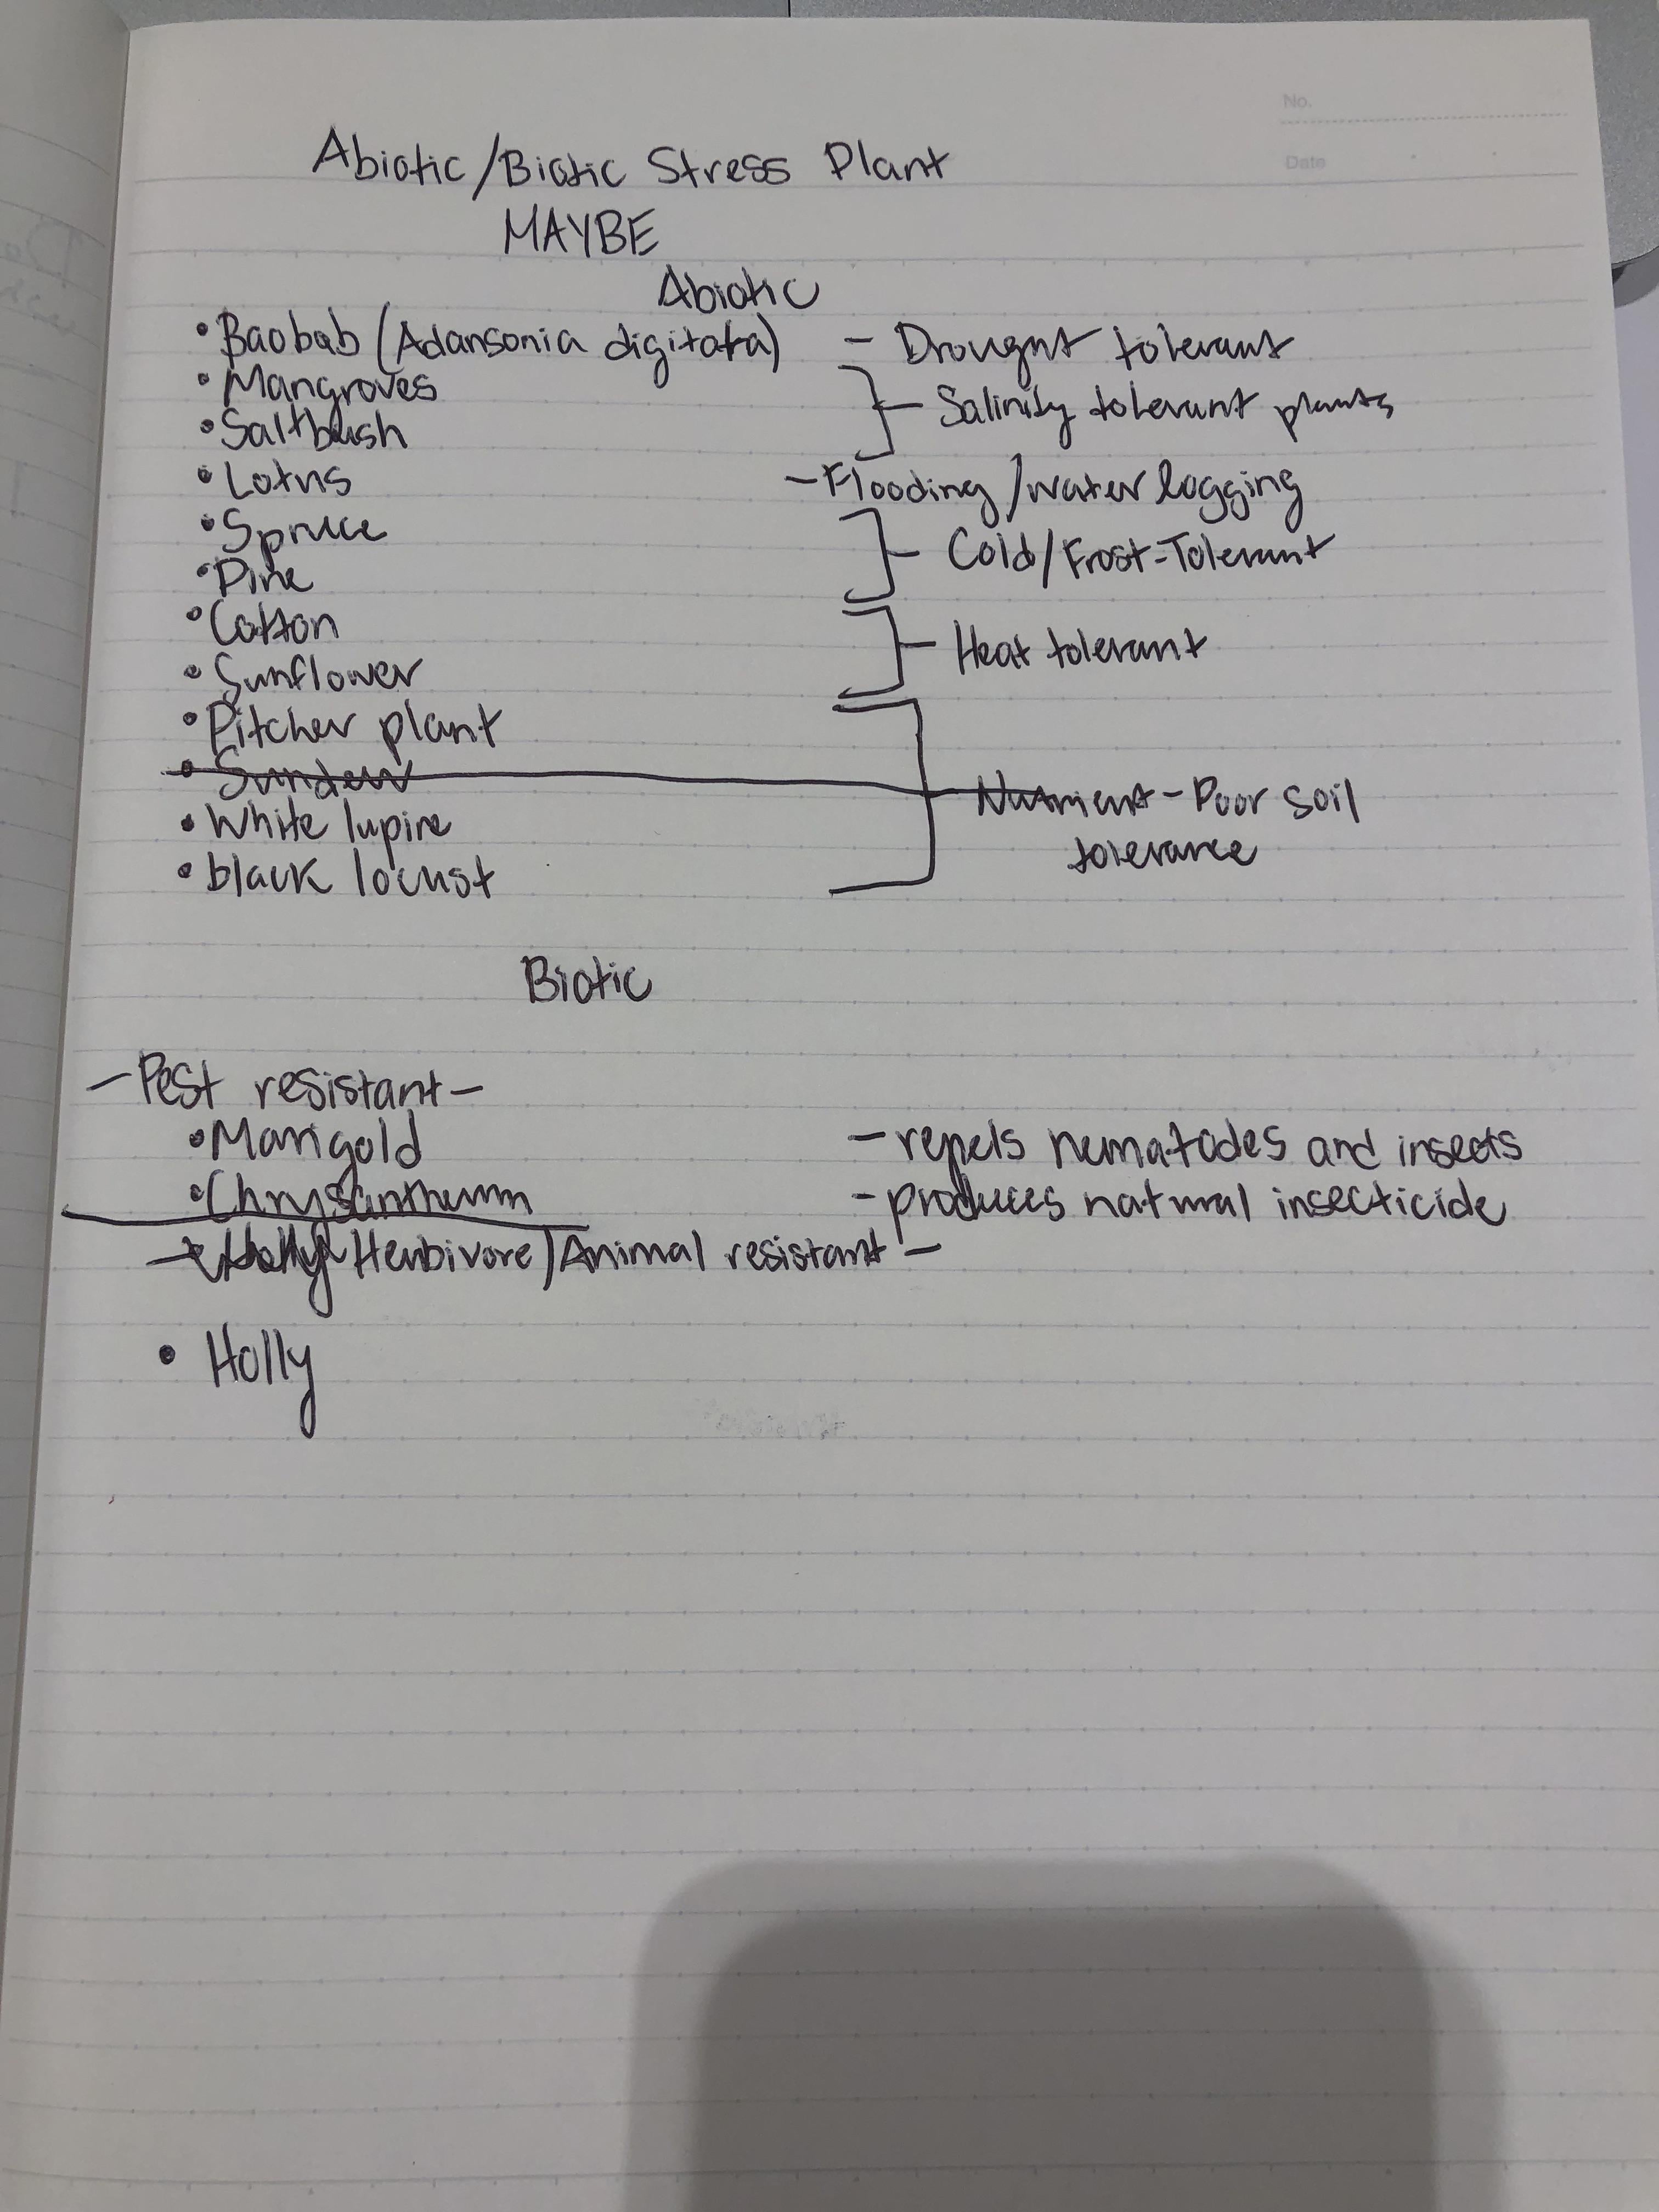 No.
Date
Abiotic/Biotic Stress Plant
MAYBE
Abiotic
• Baobab (Adansonia digitata) - Drought tolerant
• Mangroves
• Saltbush
Salinity tolerant plants
• Lotus - Flooding/water logging
• Spruce
• Pine
Cold/Frost-Tolerant
• Cotton
• Sunflower
Heat tolerant
• Pitcher plant
• Sundew
• White lupine
• black locust
Nutrient-Poor soil
tolerance
Biotic
- Pest resistant -
• Marigold - repels nematodes and insects
• Chrysanthemum - produces natural insecticide
- Holly Herbivore/Animal resistant -
• Holly